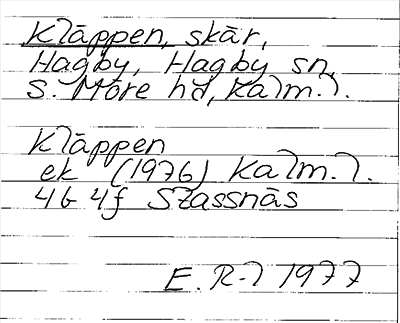 Kläppen, skär,
Hagby, Hagby sn,
S. Möre hd, Kalm.l.
Kläppen
ek (1976) Kalm.l.
4G 4f Stassnäs
E. R-l 1977